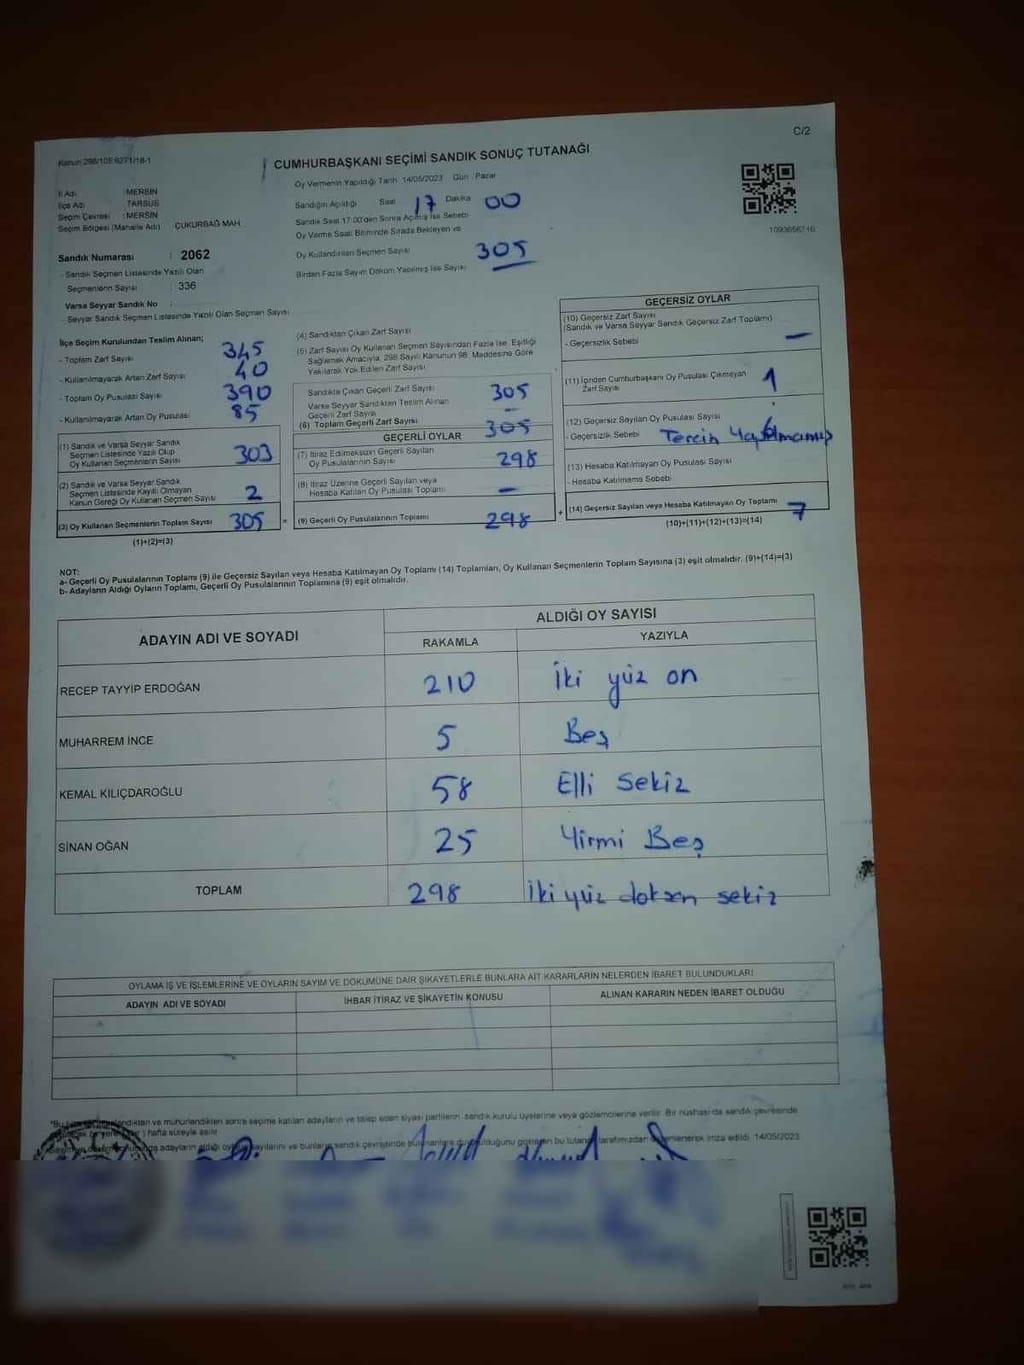 C/2
Kanun 298/105 6271/18-1
CUMHURBAŞKANI SEÇİMİ SANDIK SONUÇ TUTANAĞI
Oy Vermenin Yapıldığı Tarih 14/05/2023 Gün : Pazar
İl Adı : MERSİN
İlçe Adı : TARSUS
Seçim Çevresi : MERSİN
Seçim Bölgesi (Mahalle Adı) ÇUKURBAĞ MAH.
Sandığın Açıldığı Saat 17 Dakika 00
Sandık Saat 17.00'den Sonra Açılmış İse Sebebi
Oy Verme Saati Bitiminde Sırada Bekleyen ve
Oy Kullandırılan Seçmen Sayısı 305
Birden Fazla Sayım Döküm Yapılmış İse Sayısı
Sandık Numarası : 2062
- Sandık Seçmen Listesinde Yazılı Olan
Seçmenlerin Sayısı : 336
Varsa Seyyar Sandık No :
- Seyyar Sandık Seçmen Listesinde Yazılı Olan Seçmen Sayısı
İlçe Seçim Kurulundan Teslim Alınan;
- Toplam Zarf Sayısı 345
- Kullanılmayarak Artan Zarf Sayısı 40
- Toplam Oy Pusulası Sayısı 390
- Kullanılmayarak Artan Oy Pusulası 85
(1) Sandık ve Varsa Seyyar Sandık
Seçmen Listesinde Yazılı Olup
Oy Kullanan Seçmenlerin Sayısı 303
(2) Sandık ve Varsa Seyyar Sandık
Seçmen Listesinde Kayıtlı Olmayan
Kanun Gereği Oy Kullanan Seçmen Sayısı 2
(3) Oy Kullanan Seçmenlerin Toplam Sayısı 305
(1)+(2)=(3)
(4) Sandıktan Çıkan Zarf Sayısı
(5) Zarf Sayısı Oy Kullanan Seçmen Sayısından Fazla İse, Eşitliği
Sağlamak Amacıyla, 298 Sayılı Kanunun 98. Maddesine Göre
Yakılarak Yok Edilen Zarf Sayısı
Sandıkta Çıkan Geçerli Zarf Sayısı 305
Varsa Seyyar Sandıktan Teslim Alınan
Geçerli Zarf Sayısı -
(6) Toplam Geçerli Zarf Sayısı 305
GEÇERLİ OYLAR
(7) İtiraz Edilmeksizin Geçerli Sayılan
Oy Pusulalarının Sayısı 298
(8) İtiraz Üzerine Geçerli Sayılan veya
Hesaba Katılan Oy Pusulası Toplamı -
= (9) Geçerli Oy Pusulalarının Toplamı 298
GEÇERSİZ OYLAR
(10) Geçersiz Zarf Sayısı
(Sandık ve Varsa Seyyar Sandık Geçersiz Zarf Toplamı)
- Geçersizlik Sebebi -
(11) İçinden Cumhurbaşkanı Oy Pusulası Çıkmayan
Zarf Sayısı 1
(12) Geçersiz Sayılan Oy Pusulası Sayısı
- Geçersizlik Sebebi Tercih Yapılmamış
(13) Hesaba Katılmayan Oy Pusulası Sayısı
- Hesaba Katılmama Sebebi
+ (14) Geçersiz Sayılan veya Hesaba Katılmayan Oy Toplamı 7
(10)+(11)+(12)+(13)=(14)
NOT:
a- Geçerli Oy Pusulalarının Toplamı (9) ile Geçersiz Sayılan veya Hesaba Katılmayan Oy Toplamı (14) Toplamları, Oy Kullanan Seçmenlerin Toplam Sayısına (3) eşit olmalıdır. (9)+(14)=(3)
b- Adayların Aldığı Oyların Toplamı, Geçerli Oy Pusulalarının Toplamına (9) eşit olmalıdır.
ADAYIN ADI VE SOYADI
ALDIĞI OY SAYISI
RAKAMLA YAZIYLA
RECEP TAYYİP ERDOĞAN 210 İki yüz on
MUHARREM İNCE 5 Beş
KEMAL KILIÇDAROĞLU 58 Elli Sekiz
SİNAN OĞAN 25 Yirmi Beş
TOPLAM 298 İki yüz doksan sekiz
OYLAMA İŞ VE İŞLEMLERİNE VE OYLARIN SAYIM VE DÖKÜMÜNE DAİR ŞİKAYETLERLE BUNLARA AİT KARARLARIN NELERDEN İBARET BULUNDUKLARI
ADAYIN ADI VE SOYADI İHBAR İTİRAZ VE ŞİKAYETİN KONUSU ALINAN KARARIN NEDEN İBARET OLDUĞU
ve mühürlendikten sonra seçime katılan adayların ve talep eden siyasi partilerin sandık kurulu üyelerine veya gözlemcilerine verilir. Bir nüshası da sandık çevresinde
hafta süreyle asılır.
14/05/2023